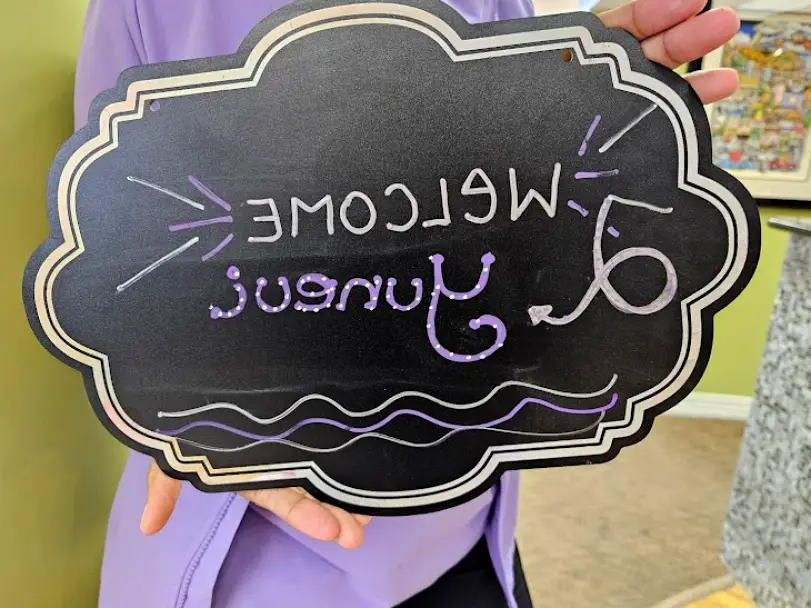 WeLCOME
Yuneui